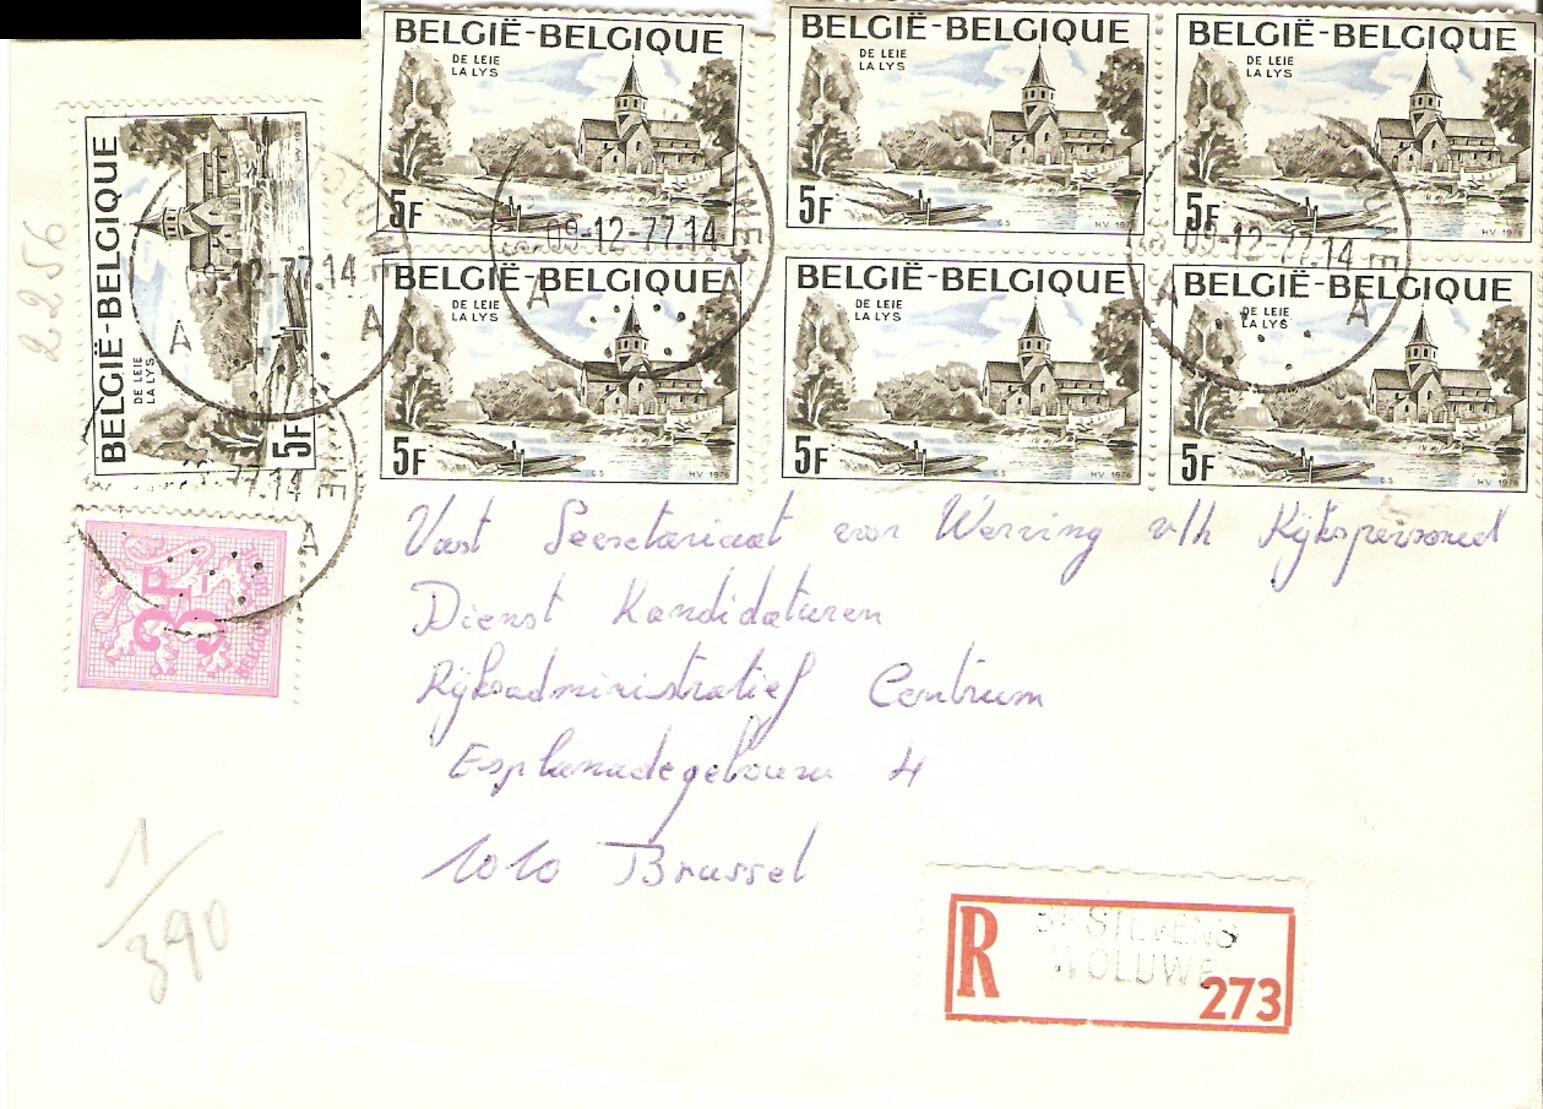 BELGIË-BELGIQUE
DE LEIE
LA LYS
5F
H.V. 1976
BELGIË-BELGIQUE
DE LEIE
LA LYS
5F
G.S. H.V. 1976
BELGIË-BELGIQUE
DE LEIE
LA LYS
5F
H.V. 1976
BELGIË-BELGIQUE
DE LEIE
LA LYS
5F
H.V. 1976
BELGIË-BELGIQUE
DE LEIE
LA LYS
5F
H.V. 1976
BELGIË-BELGIQUE
DE LEIE
LA LYS
5F
G.S. H.V. 1976
BELGIË-BELGIQUE
DE LEIE
LA LYS
5F
G.S. H.V. 1976
09-12-77.14
A A
09-12-77.14
A A
-12-77.14
A A
77.14
A
3F
2256
Vast Secretariaat voor Werving v/h Rijkspersoneel
Dienst Kandidaturen
Rijksadministratief Centrum
Esplanadegebouw 4
1010 Brussel
1/390
R
ST STEVENS
WOLUWE
273